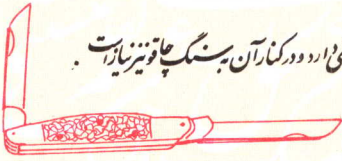 دارد و در کنار آن به سنگ چاقو نیز نیاز است .